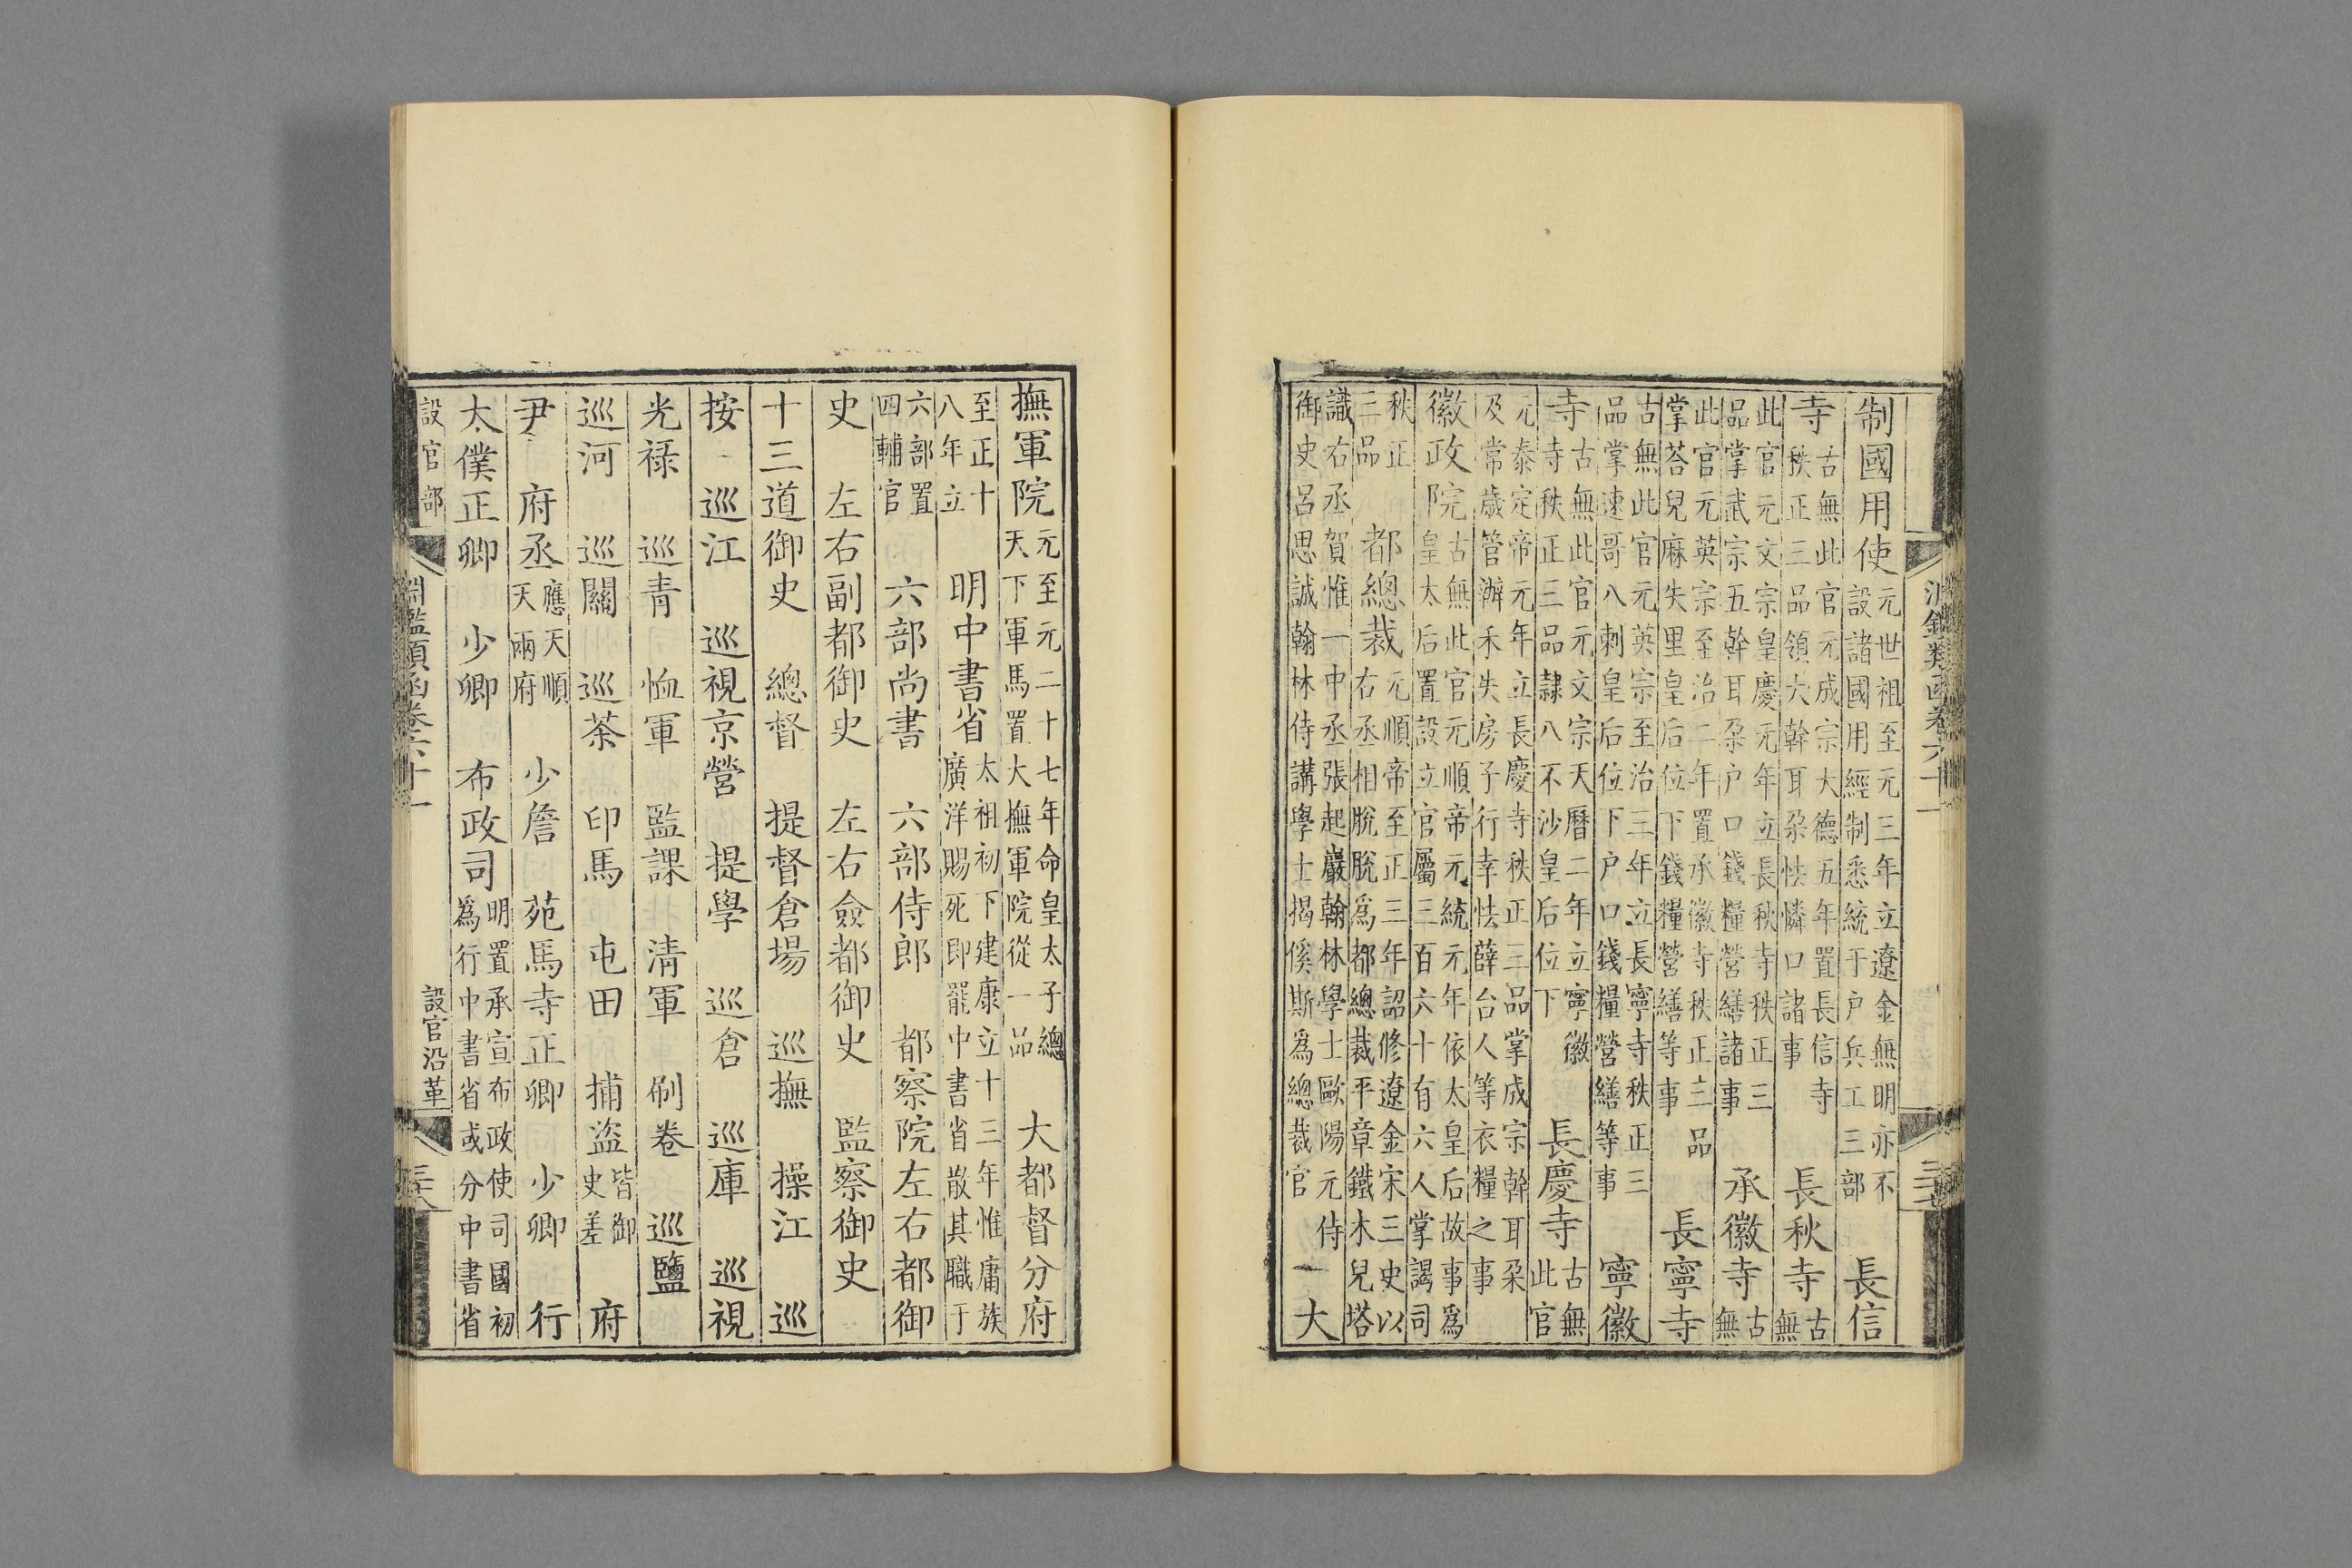 淵鑑類函卷六十一
制國用使元世祖至元三年立遼金無明亦不設諸國用經制悉統于户兵工三部　長信
寺古無此官元成宗大德五年置長信寺秩正三品領大斡耳朶怯憐口諸事　長秋寺古無
此官元文宗皇慶元年立長秋寺秩正三品掌武宗五斡耳朶户口錢糧營繕諸事　承徽寺古無
此官元英宗至治二年置承徽寺秩正三品掌荅兒麻失里皇后位下錢糧營繕等事　長寧寺
古無此官元英宗至治三年立長寧寺秩正三品掌速哥八剌皇后位下户口錢糧營繕等事　寧徽
寺古無此官元文宗天曆二年立寧徽寺秩正三品隷八不沙皇后位下　長慶寺古無此官
元泰定帝元年立長慶寺秩正三品掌成宗斡耳朶及常歲管辦禾失房子行幸怯薛台人等衣糧之事
徽政院古無此官元順帝元統元年依太皇后故事爲皇太后置設立官屬三百六十有六人掌謁司
秩正三品　都總裁元順帝至正三年詔修遼金宋三史以右丞相脫脫爲都總裁平章鐵木兒塔
識右丞賀惟一中丞張起巖翰林學士歐陽元侍御史呂思誠翰林侍講學士揭傒斯爲總裁官　大
撫軍院元至元二十七年命皇太子總天下軍馬置大撫軍院從一品　大都督分府
至正十八年立　明中書省太祖初下建康立十三年惟庸族廣洋賜死即罷中書省散其職于
六部置四輔官　六部尚書　六部侍郎　都察院左右都御
史　左右副都御史　左右僉都御史　監察御史
十三道御史　總督　提督倉場　巡撫　操江　巡
按　巡江　巡視京營　提學　巡倉　巡庫　巡視
光祿　巡青　恤軍　監課　清軍　刷卷　巡鹽
巡河　巡關　巡茶　印馬　屯田　捕盜皆御史差　府
尹　府丞應天順天兩府　少詹　苑馬寺正卿　少卿　行
太僕正卿　少卿　布政司明置承宣布政使司國初爲行中書省或分中書省
設官部　淵鑑類函卷六十一　設官沿革　三十八